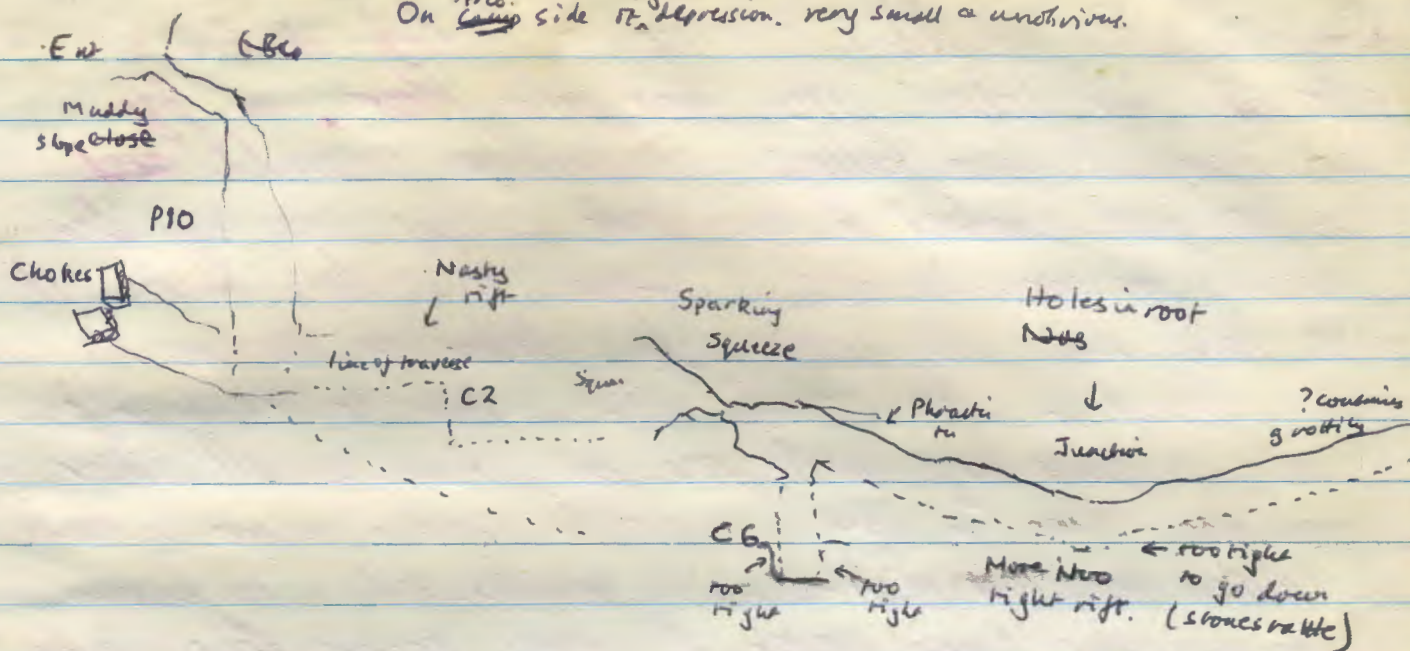 On side of depression. very small & unobvious.
Ent
Muddy
slope close
P10
Chokes
Nasty
rift
line of traverse
C2
Sparking
Squeeze
Holes in roof
Phreatic
Junction
? continues
grottily
C6
too
tight
too
tight
More
tight rift.
← too tight
to go down
(stones rattle)